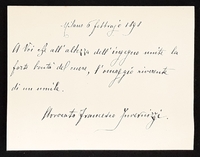 Milano 6 febbraio 1891
A Voi che all'altezza dell'ingegno unite la
forte bontà del cuore, l'omaggio riverente
di un umile.
Avvocato Francesco